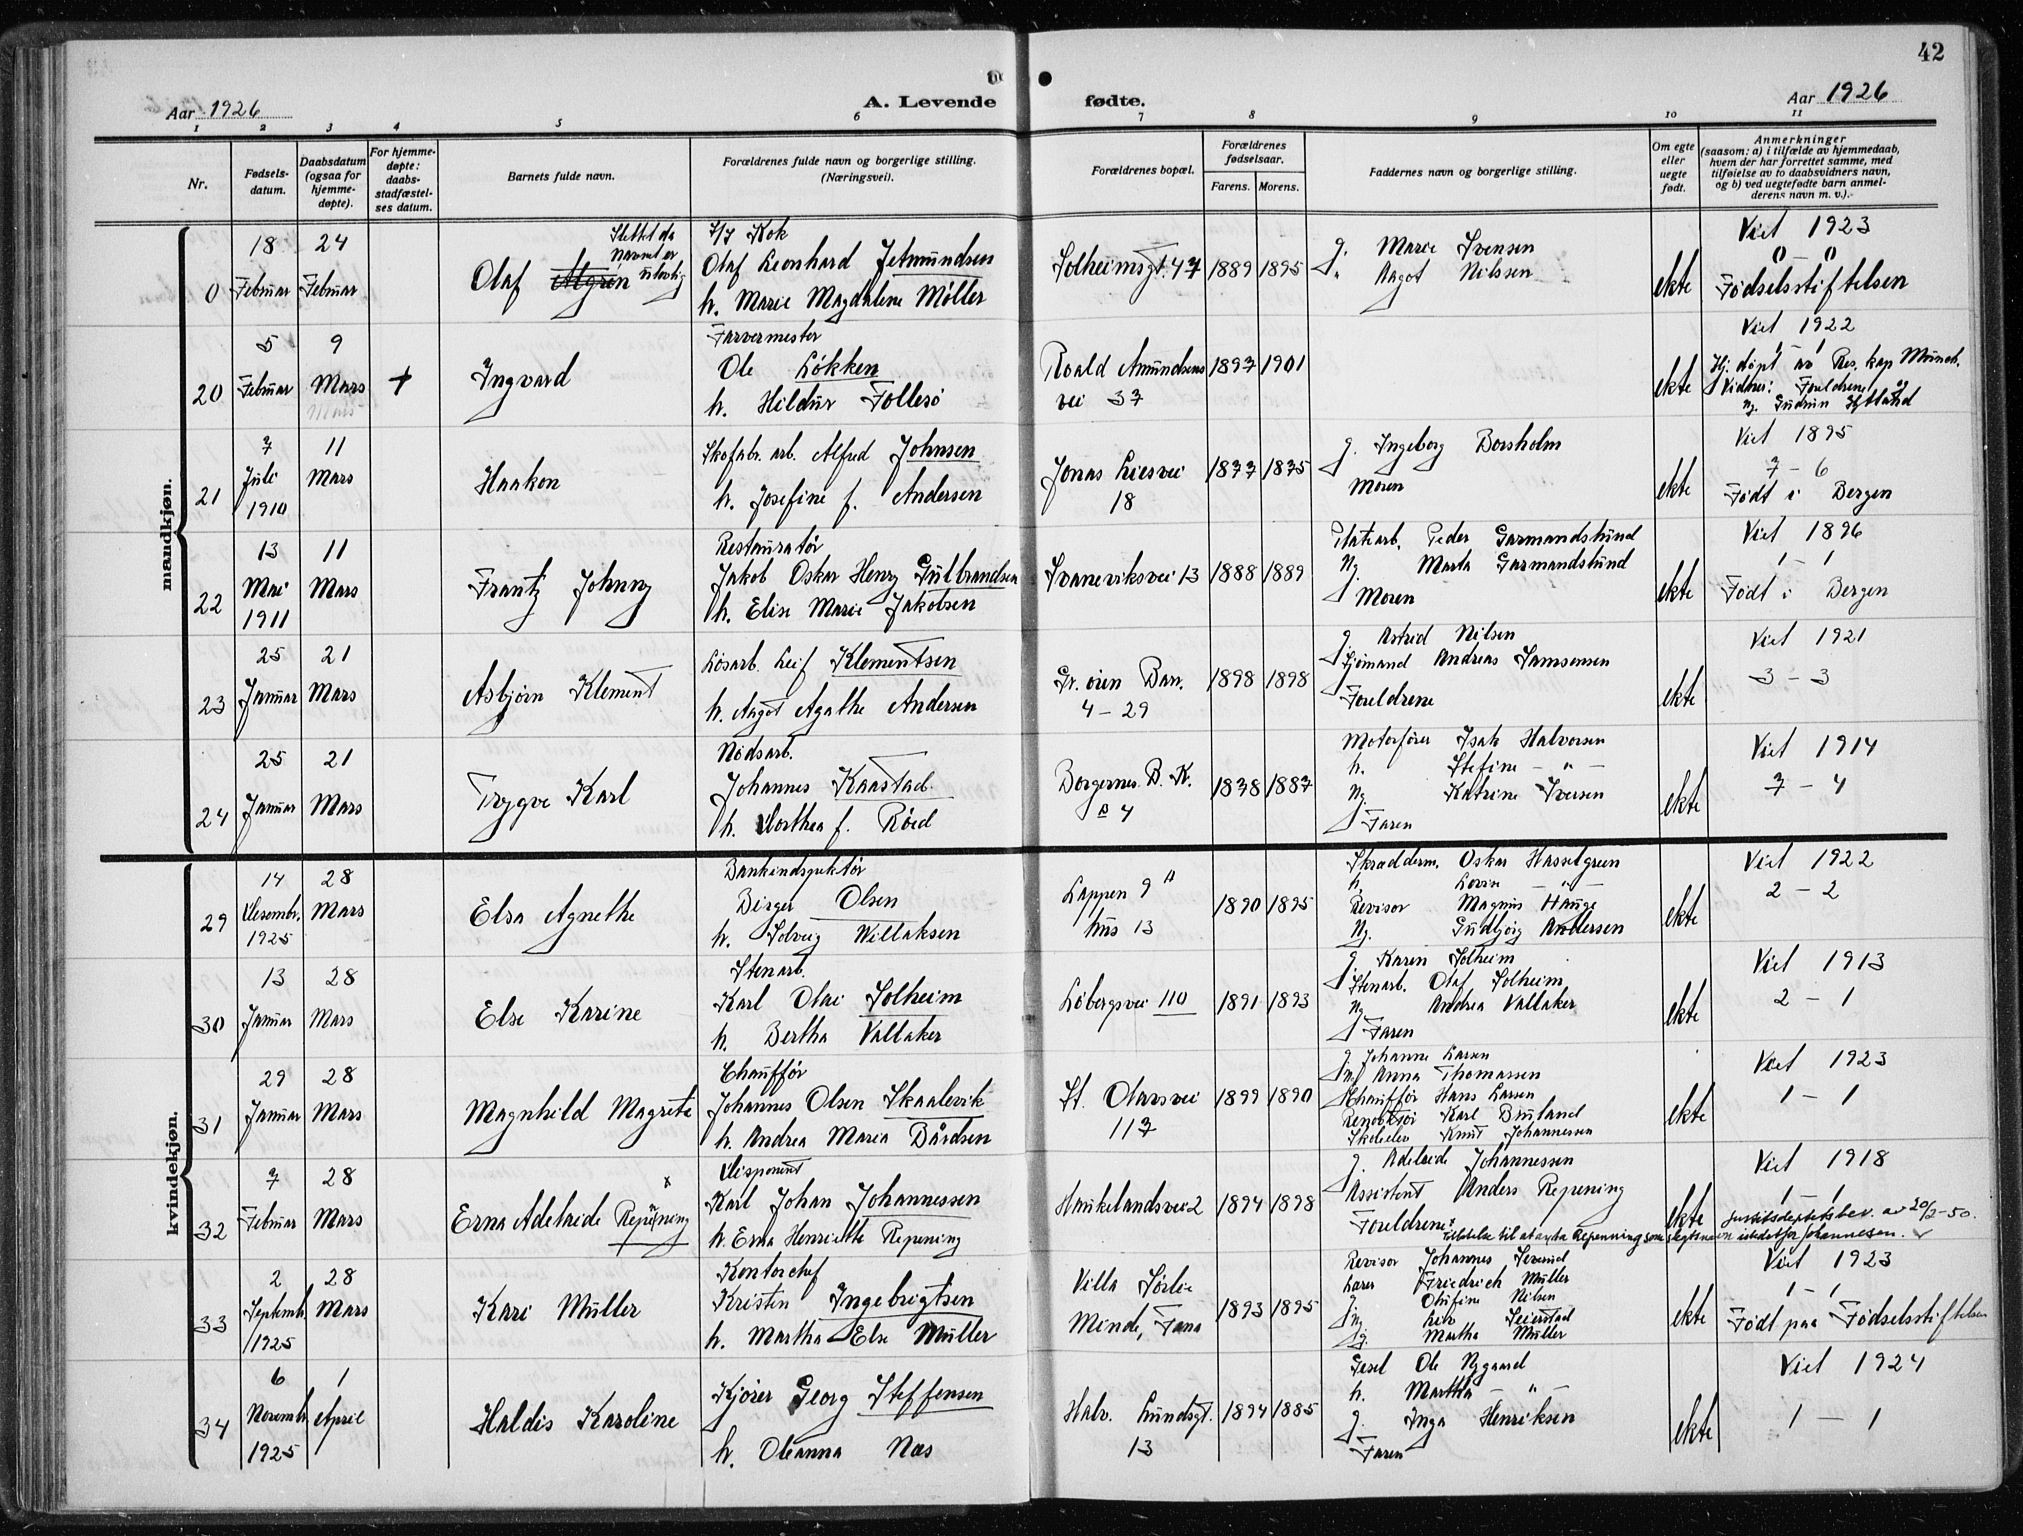 42
Aar 1926
A. Levende fødte.
Aar 1926
1 2 3 4 5 6 7 8 9 10 11
Nr.
Fødsels-
datum.
Daabsdatum
(ogsaa for
hjemme-
døpte).
For hjemme-
døpte:
daabs-
stadfæstel-
ses datum.
Barnets fulde navn.
Forældrenes fulde navn og borgerlige stilling.
(Næringsvei).
Forældrenes bopæl.
Forældrenes
fødselsaar.
Farens. Morens.
Faddernes navn og borgerlige stilling.
Om egte
eller
uegte
født.
Anmerkninger
(saasom: a) i tilfælde av hjemmedaab,
hvem der har forrettet samme, med
tilføielse av to daabsvidners navn,
og b) ved uegtefødte barn anmel-
derens navn m. v.).
mandkjøn.
0
18
Februar
24
Februar
Olaf Algren
Slettet da
navnet er
ulovlig
S/J Kok
Olaf Leonhard Jetmundsen
h. Marie Magdalene Møller
Solheimsgt. 47
1889 1895
g. Marie Svensen
" Aagot Nilssen
ekte
Viet 1923
0 – 0
Fødselsstiftelsen
20
5
Februar
9
Mars
+
Ingvard
Farvermester
Ole Løkken
h. Hildur Follesø
Roald Amundsens
vei 37
1897 1901
ekte
Viet 1922
1 – 1
Hj. døpt av Res. kap Munch.
Vidner: Foreldrene og
Ug. Gudrun Hjtland
21
7
Juli
1910
11
Mars
Haakon
Skofabr. arb. Alfred Johnsen
h. Josefine f. Andersen
Jonas Liesvei
18
1877 1875
g. Ingeborg Borsholm
Moren
ekte
Viet 1895
7 – 6
Født i Bergen
22
13
Mai
1911
11
Mars
Frantz Johnny
Restauratør
Jakob Oskar Henry Gulbrandsen
h. Elise Marie Jakobsen
Svaneviksvei 13
1888 1889
Platearb. Peder Garmandslund
Ug. Marta Garmandslund
Moren
ekte
Viet 1896
1 – 1
Født i Bergen
23
25
Januar
21
Mars
Asbjørn Klement
Løsarb. Leif Klementsen
h. Aagot Agathe Andersen
Gr. øien Barr.
4 – 29
1898 1898
g. Astrid Nilsen
Sjømand Andreas Samsonsen
Foreldrene
ekte
Viet 1921
3 – 3
24
25
Januar
21
Mars
Trygve Karl
Nødsarb.
Johannes Kaastad
h. Dorthea f. Røed
Borgernes B. K.
e 4
1878 1887
Motorfører Isak Halvorsen
h. Stefine – " –
Ug. Katrine Iversen
Faren
ekte
Viet 1914
7 – 4
kvindekjøn.
29
14
Desembr.
1925
28
Mars
Elsa Agnethe
Bankindspektør
Birger Olsen
h. Solveig Willaksen
Lappen 9 "
hus 13
1890 1895
Skradderm. Oskar Hasselgreen
h. Lovise – " –
Revisor Magnus Hauge
Ug. Gudbjørg Andersen
ekte
Viet 1922
2 – 2
30
13
Januar
28
Mars
Else Karine
Stenarb.
Karl Olai Solheim
h. Bertha Vallaker
Løbergsvei 110
1891 1893
g. Karen Solheim
Stenarb. Olaf Solheim
Ug Andrea Vallaker
Faren
ekte
Viet 1913
2 – 1
31
29
Januar
28
Mars
Magnhild Magrete
Chauffør
Johannes Olsen Skaalevik
h. Andrea Maria Bårdsen
St. Olavsvei
117
1899 1890
g. Johanne Larsen
Ug Anna Thomassen
Chauffør Hans Larsen
Karl Bruland
Skoleelev Knut Johannessen
ekte
Viet 1923
1 – 1
32
7
Februar
28
Mars
Erna Adelaide Repening x
Disponent
Karl Johan Johannessen
h. Erna Henriette Repening
Haukelandsvei 2
1894 1898
g. Adelaide Johannessen
Assistent Anders Repening
Foreldrene
ekte
Viet 1918
1 – 1
x Tilldelse til at anta Repenning som slegtsnavn istedetfor Johannesen.
Justisdeptets bev. av 20/2-50.
33
2
Septemb.
1925
28
Mars
Kari Müller
Kontorchef
Kristen Ingebrigtsen
h. Martha Else Müller
Villa Sørlie
Minde, Fana
1893 1895
Revisor Johannes Severud
Lærer Friedrich Müller
g Olufine Nilsen
Ug Liv Seierstad
g. Martha Müller
ekte
Viet 1923
1 – 1
Født paa Fødselsstiftelsen
34
6
Novemb
1925
1
April
Haldis Karoline
Kjører Georg Steffensen
h. Oleanna Næs
Halv. Lundsgt.
13
1894 1885
Gesel Ole Nygaard
h. Martha – " –
g. Inga Henriksen
Faren
ekte
Viet 1924
1 – 1